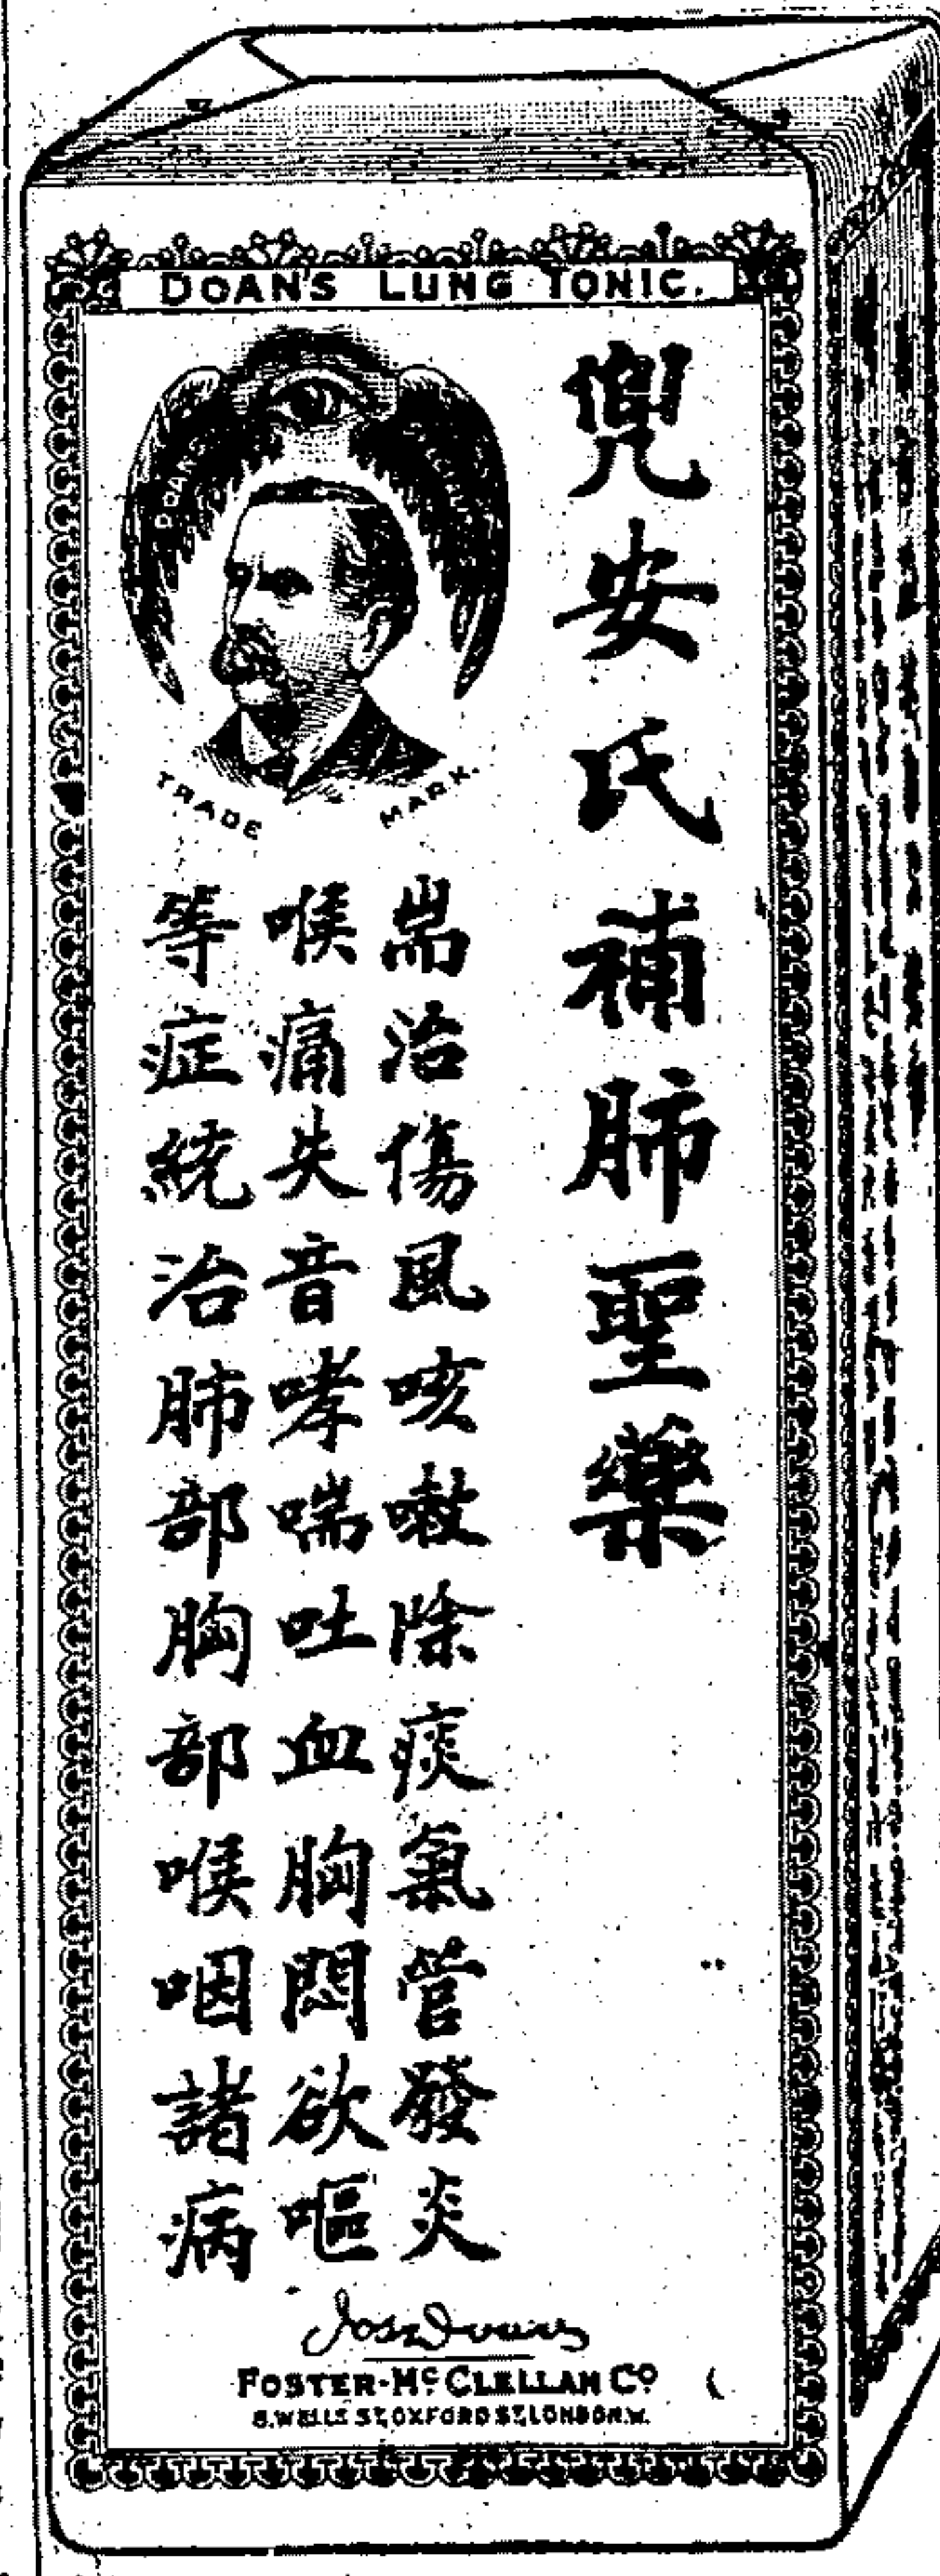 DOAN'S LUNG TONIC.
兜安氏補肺聖藥
耑治傷風咳嗽除痰氣管發炎
喉痛失音哮喘吐血胸悶欲嘔
等症統治肺部胸部喉咽諸病
DOAN
TRADE MARK.
FOSTER-McCLELLAN Co
8, WELLS ST, OXFORD ST, LONDON, W.